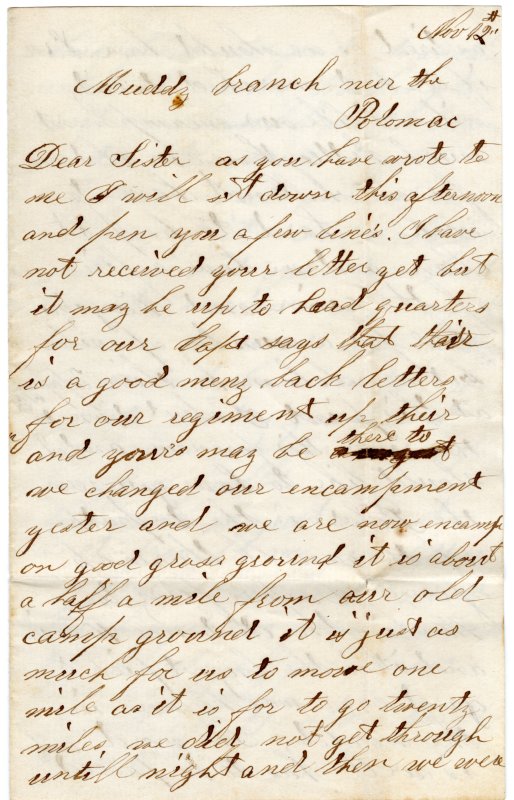 Nov 12"
Muddy branch neer the
Potomac
Dear Sister as you have wrote to
me I will set down this afternoon
and pen you a few line's. I have
not received your letter yet but
it may be up to head quarters
for our Capt says that thair
is a good meny back letters
for our regiment up their
and your's may be there to
we changed our encampment
yester and we are now encamp
on good grass ground it is about
a half a mile from our old
camp ground it is just as
much for us to move one
mile as it is for to go twenty
miles we did not get through
untill night and then we were